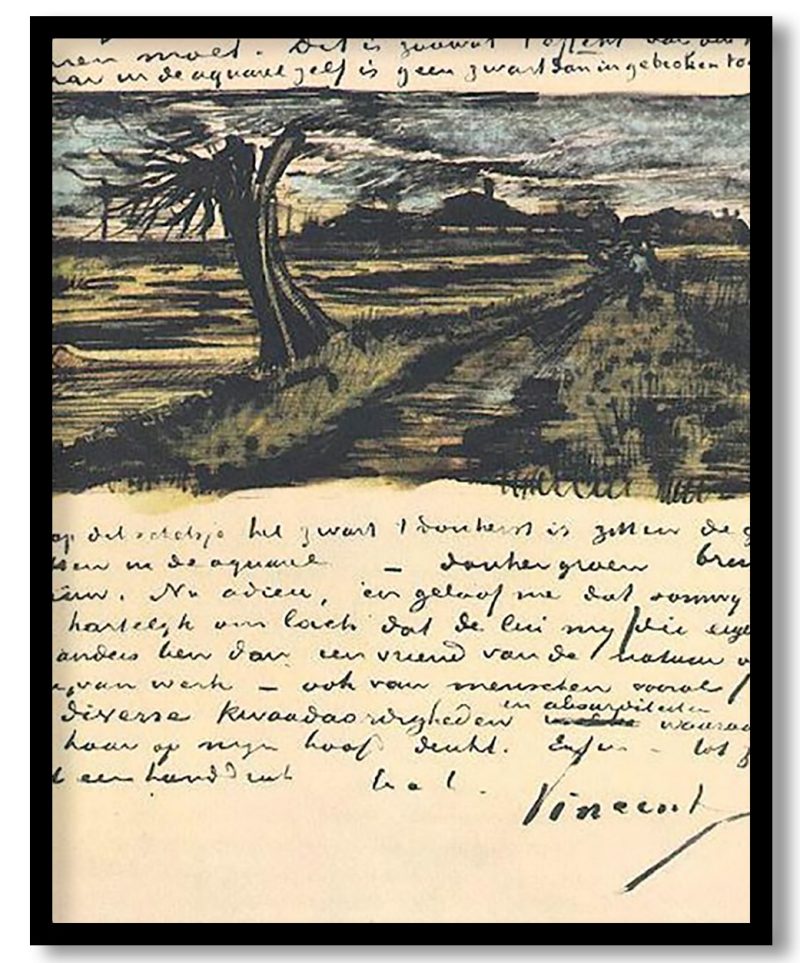 moet. Dit is zoowat
in de aquarel zelf is geen zwart dan in gebroken
op dit schetsje het zwart 't donkerst is zitten de
in de aquarel — donkergroen
Nu adieu, en geloof me dat
hartelyk om lach dat de lui my
anders ben dan een vriend van de natuur
van werk — ook van menschen vooral
en absurditeiten
diverse kwaadaardigheden waaraan
haar op myn hoofd denkt. Enfin — tot
een handdruk
Vincent